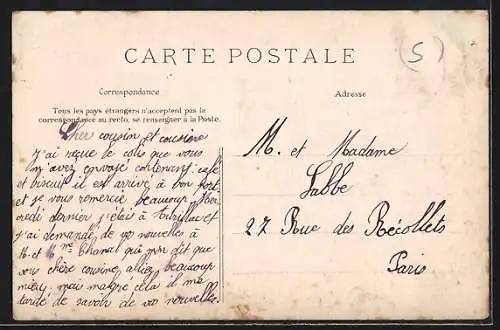 CARTE POSTALE
(5)
Correspondance
Adresse
Tous les pays étrangers n'acceptent pas la
correspondance au recto, se renseigner à la Poste.
Cher cousin et cousine
j'ai reçue le colis que vous
m'avez envoyé contenant café
et biscuit il est arrivé à bon port
et je vous remercie beaucoup Mer
credi dernier j'étais à
j'ai demandé de vos nouvelles à
M. et Mme Chanal qui m'on dit que
vous chère cousine alliez beaucoup
mieux mais malgré cela il me
tarde de savoir de vos nouvelles.
M. et Madame
Labbe
27 Rue des Récollets
Paris